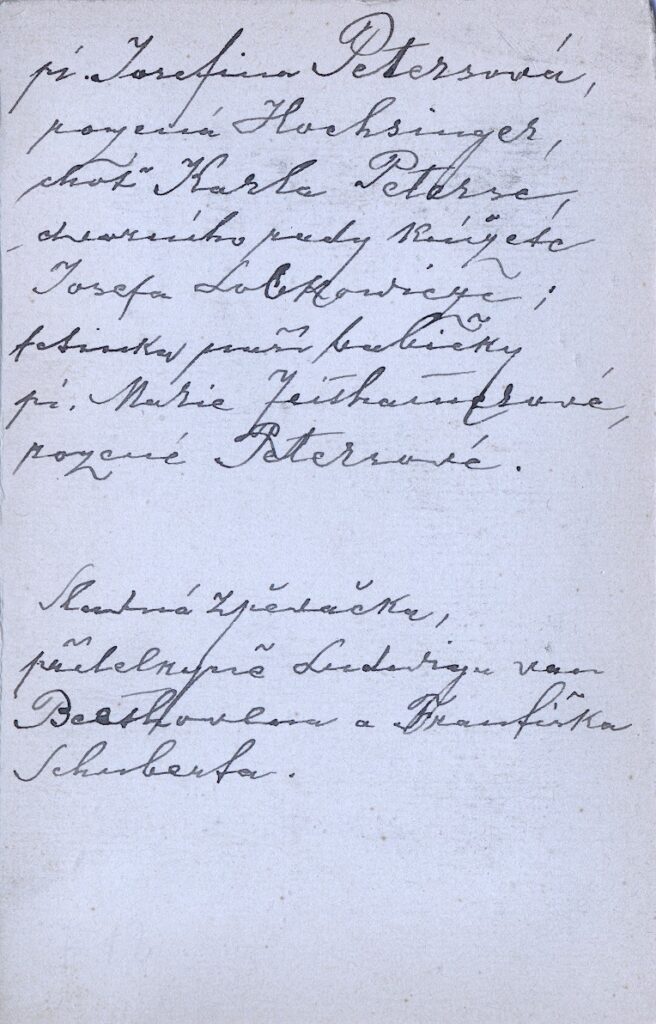 pí. Josefina Petersová,
rozená Hochsinger,
choť Karla Peterse,
dvorního rady knížete
Josefa Lobkowicze;
tetinka paní babičky
pí. Marie
rozené Petersové.
Slavná zpěvačka,
přítelkyně Ludwiga van
Beethovena a Františka
Schuberta.